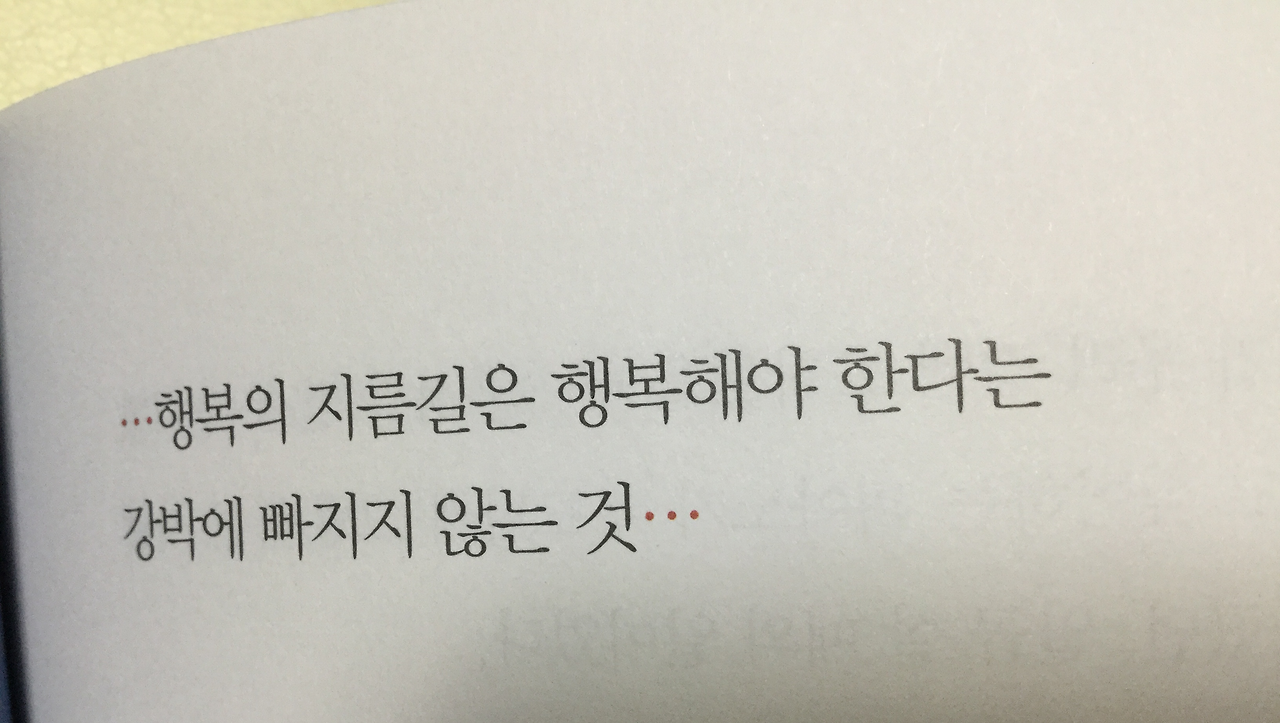 …행복의 지름길은 행복해야 한다는
강박에 빠지지 않는 것…